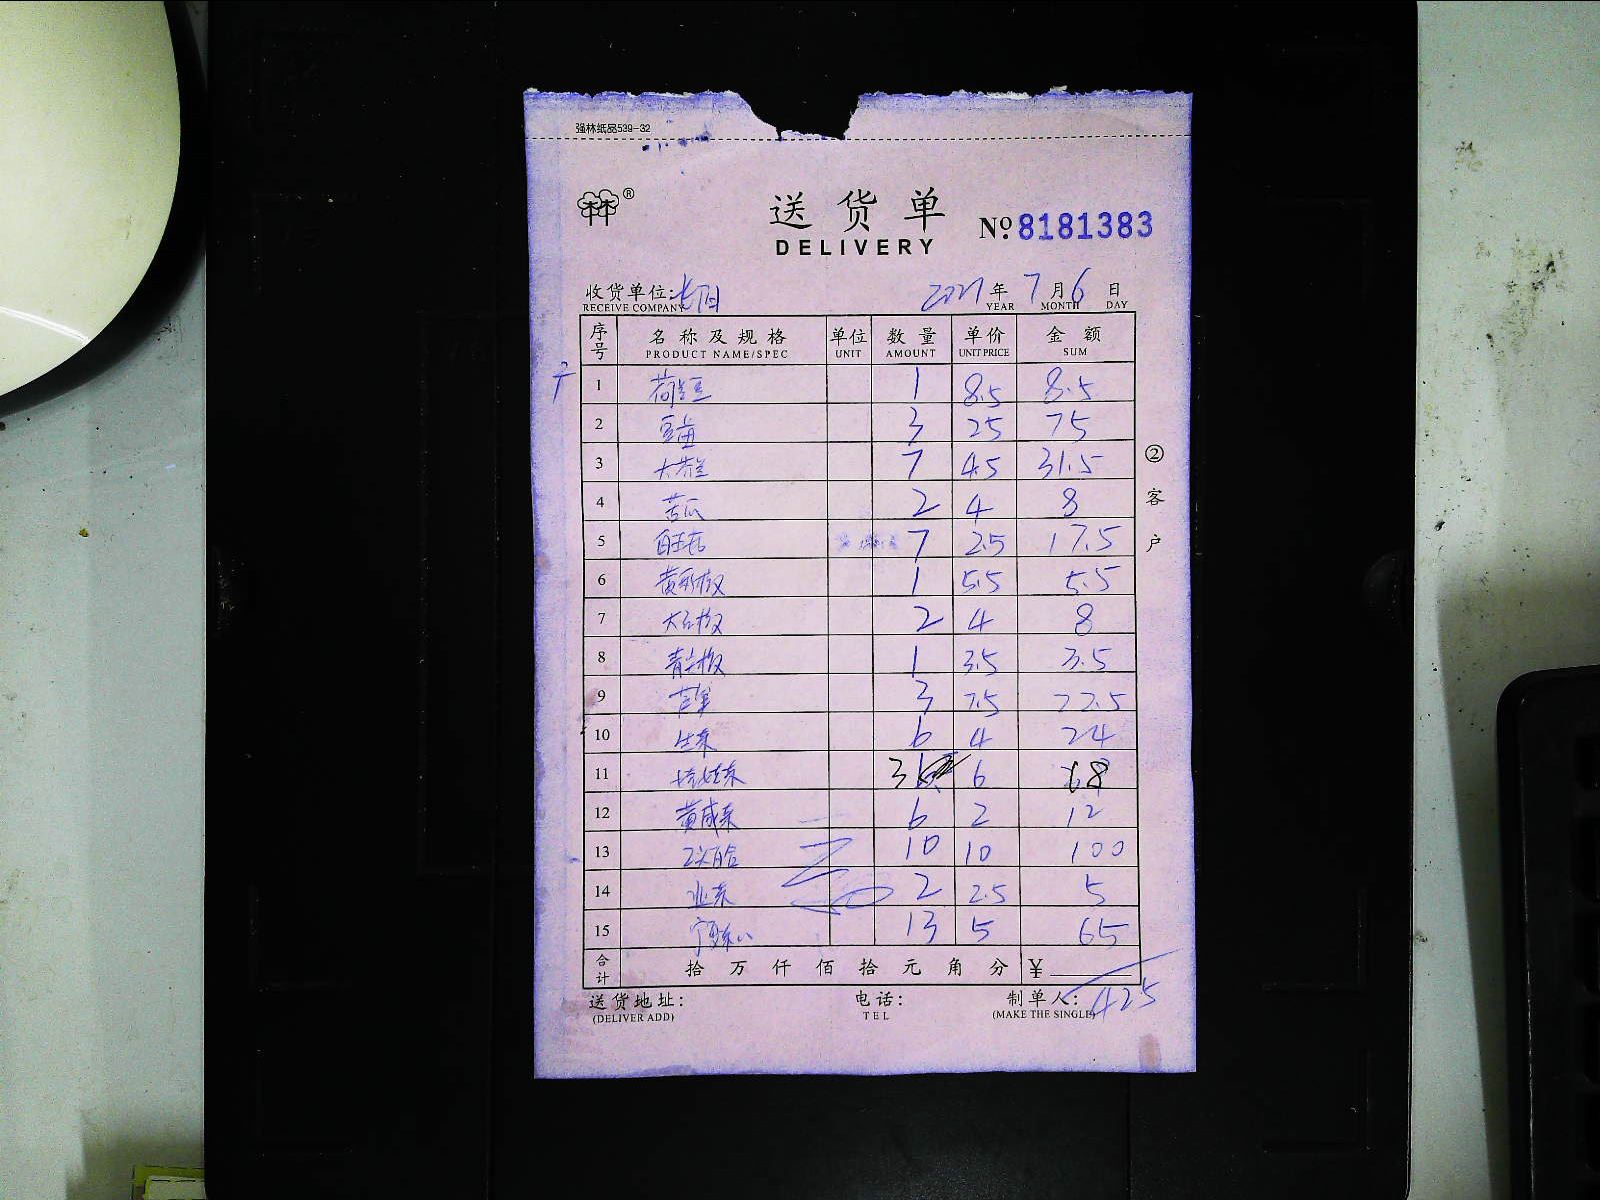 强林纸品539-32
®
送货单
DELIVERY
№ 8181383
收货单位: 2021年7月6日
RECEIVE COMPANY YEAR MONTH DAY
序号 名称及规格 单位 数量 单价 金额
PRODUCT NAME/SPEC UNIT AMOUNT UNIT PRICE SUM
1 荷兰豆 1 8.5 8.5
2 3 25 75
3 7 4.5 31.5
4 苦瓜 2 4 8
5 7 2.5 17.5
6 黄彩椒 1 5.5 5.5
7 大红椒 2 4 8
8 青尖椒 1 3.5 3.5
9 3 7.5 22.5
10 生菜 6 4 24
11 娃娃菜 3 6 68
12 黄咸菜 6 2 12
13 百合 10 10 100
14 2 2.5 5
15 13 5 65
合计 拾万仟佰拾元角分 ¥
425
送货地址: 电话: 制单人:
(DELIVER ADD) TEL (MAKE THE SINGLE)
② 客户